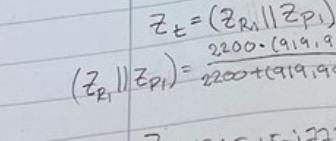 Z_t = (Z_R1 || Z_P1)
(Z_R1 || Z_P1) = 2200 · (919,9
2200 + (919,9